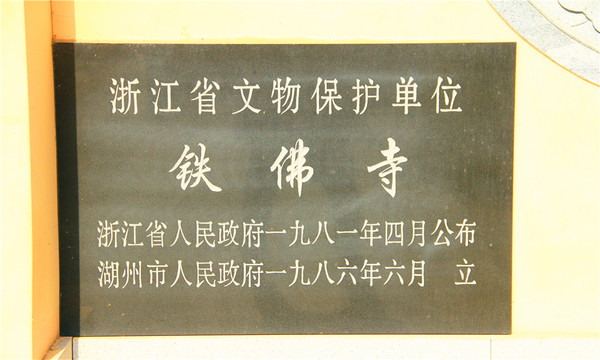 浙江省文物保护单位
铁佛寺
浙江省人民政府一九八一年四月公布
湖州市人民政府一九八六年六月 立